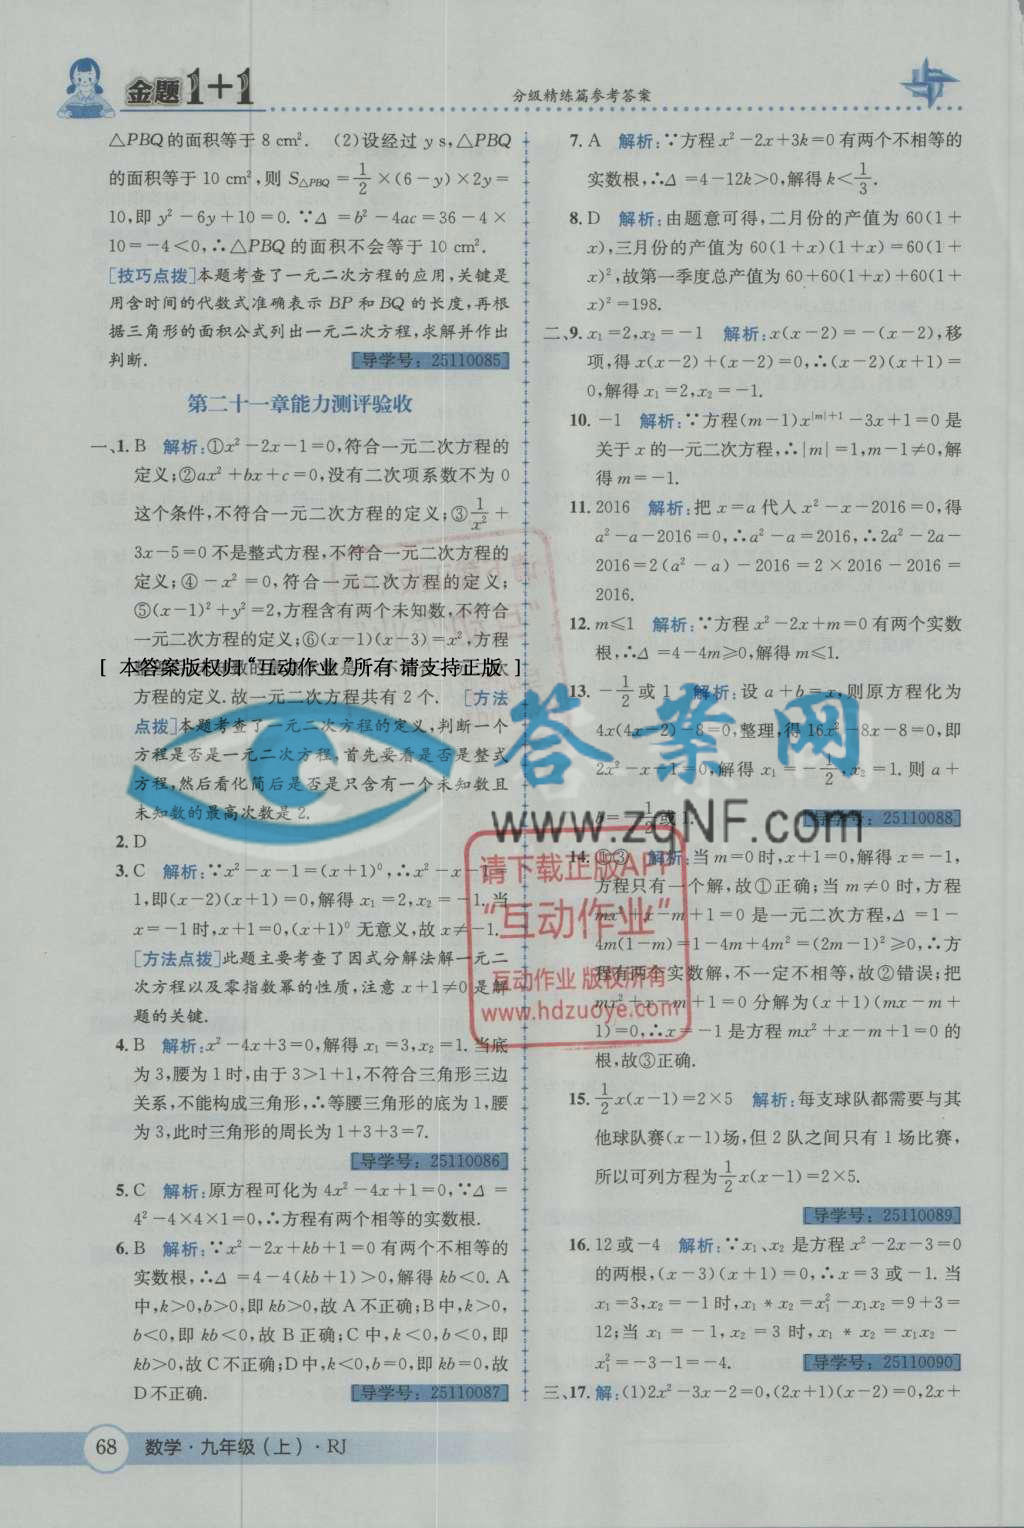 金题1+1
分级精练篇参考答案
△PBQ的面积等于8 cm². (2)设经过y s,△PBQ
的面积等于10 cm²,则 S△PBQ=1/2×(6-y)×2y=
10,即 y²-6y+10=0.∵Δ=b²-4ac=36-4×
10=-4<0,∴△PBQ的面积不会等于10 cm².
[技巧点拨]本题考查了一元二次方程的应用,关键是
用含时间的代数式准确表示BP和BQ的长度,再根
据三角形的面积公式列出一元二次方程,求解并作出
判断. 导学号:25110085
第二十一章能力测评验收
一、1. B 解析:①x²-2x-1=0,符合一元二次方程的
定义;②ax²+bx+c=0,没有二次项系数不为0
这个条件,不符合一元二次方程的定义;③1/x²+
3x-5=0不是整式方程,不符合一元二次方程的
定义;④-x²=0,符合一元二次方程的定义;
⑤(x-1)²+y²=2,方程含有两个未知数,不符合
一元二次方程的定义;⑥(x-1)(x-3)=x²,方程
[ 本答案版权归“互动作业”所有 请支持正版 ]
方程的定义.故一元二次方程共有2个. [方法
点拨]本题考查了一元二次方程的定义,判断一个
方程是否是一元二次方程,首先要看是否是整式
方程,然后看化简后是否是只含有一个未知数且
未知数的最高次数是2.
2. D
3. C 解析:∵x²-x-1=(x+1)⁰,∴x²-x-1=
1,即(x-2)(x+1)=0,解得 x₁=2,x₂=-1.当
x=-1时,x+1=0,(x+1)⁰无意义,故x≠-1.
[方法点拨]此题主要考查了因式分解法解一元二
次方程以及零指数幂的性质,注意x+1≠0是解
题的关键.
4. B 解析:x²-4x+3=0,解得 x₁=3,x₂=1.当底
为3,腰为1时,由于3>1+1,不符合三角形三边
关系,不能构成三角形,∴等腰三角形的底为1,腰
为3,此时三角形的周长为1+3+3=7.
导学号:25110086
5. C 解析:原方程可化为4x²-4x+1=0,∵Δ=
4²-4×4×1=0,∴方程有两个相等的实数根.
6. B 解析:∵x²-2x+kb+1=0有两个不相等的
实数根,∴Δ=4-4(kb+1)>0,解得kb<0. A
中,k>0,b>0,即kb>0,故A不正确;B中,k>0,
b<0,即kb<0,故B正确;C中,k<0,b<0,即
kb>0,故C不正确;D中,k<0,b=0,即kb=0,故
D不正确. 导学号:25110087
7. A 解析:∵方程x²-2x+3k=0有两个不相等的
实数根,∴Δ=4-12k>0,解得k<1/3.
8. D 解析:由题意可得,二月份的产值为60(1+
x),三月份的产值为60(1+x)(1+x)=60(1+
x)²,故第一季度总产值为60+60(1+x)+60(1+
x)²=198.
二、9. x₁=2,x₂=-1 解析:x(x-2)=-(x-2),移
项,得x(x-2)+(x-2)=0,∴(x-2)(x+1)=
0,解得 x₁=2,x₂=-1.
10. -1 解析:∵方程(m-1)x^(|m|+1)-3x+1=0是
关于x的一元二次方程,∴|m|=1,m-1≠0,解
得m=-1.
11. 2016 解析:把x=a代入x²-x-2016=0,得
a²-a-2016=0,∴a²-a=2016,∴2a²-2a-
2016=2(a²-a)-2016=2×2016-2016=
2016.
12. m≤1 解析:∵方程x²-2x+m=0有两个实数
根,∴Δ=4-4m≥0,解得m≤1.
13. -1/2或1 解析:设a+b=x,则原方程化为
4x(4x-2)-8=0,整理,得16x²-8x-8=0,即
2x²-x-1=0,解得 x₁=-1/2,x₂=1.则a+
b=-1/2或1. 导学号:25110088
14. ①③ 解析:当m=0时,x+1=0,解得x=-1,
方程只有一个解,故①正确;当m≠0时,方程
mx²+x-m+1=0是一元二次方程,Δ=1-
4m(1-m)=1-4m+4m²=(2m-1)²≥0,∴方
程有两个实数解,不一定不相等,故②错误;把
mx²+x-m+1=0分解为(x+1)(mx-m+
1)=0,∴x=-1是方程mx²+x-m+1=0的
根,故③正确.
15. 1/2x(x-1)=2×5 解析:每支球队都需要与其
他球队赛(x-1)场,但2队之间只有1场比赛,
所以可列方程为1/2x(x-1)=2×5.
导学号:25110089
16. 12或-4 解析:∵x₁、x₂是方程x²-2x-3=0
的两根,(x-3)(x+1)=0,∴x=3或-1.当
x₁=3,x₂=-1时,x₁*x₂=x₁²-x₁x₂=9+3=
12;当 x₁=-1,x₂=3时,x₁*x₂=x₁x₂-
x₁²=-3-1=-4. 导学号:25110090
三、17. 解:(1)2x²-3x-2=0,(2x+1)(x-2)=0,2x+
答案网
www.zqNF.com
请下载正版APP
“互动作业”
互动作业 版权所有
www.hdzuoye.com
68 数学·九年级(上)·RJ